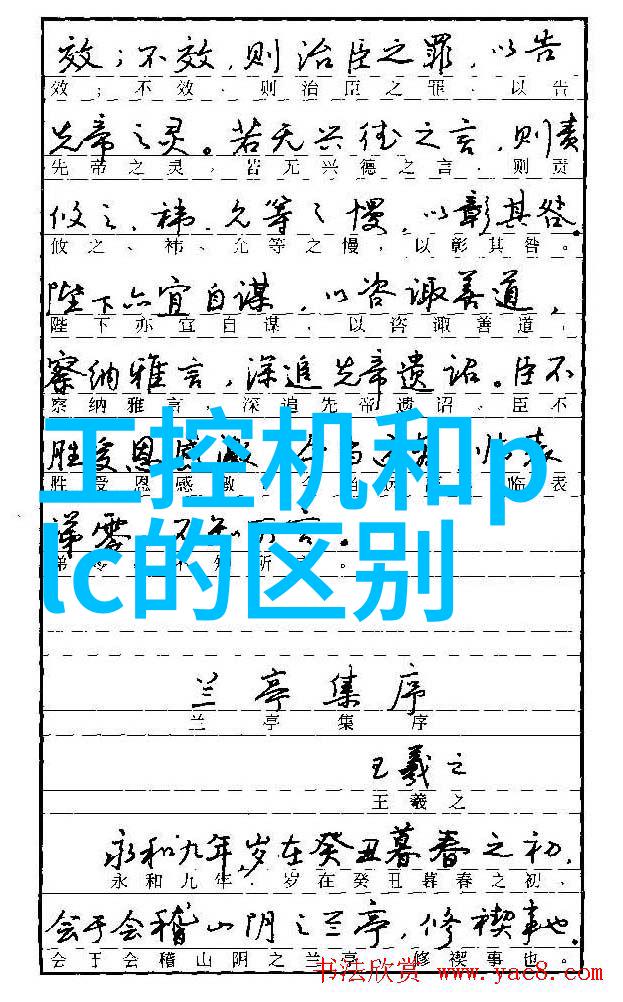 效；不效，则治臣之罪，以告
效；不效、则治臣之罪、以告
先帝之灵。若无兴德之言，则责
先帝之灵，若无兴德之言、则责
攸之、祎、允等之慢，以彰其咎。
攸之、祎、允等之慢，以彰其咎。
陛下亦宜自谋，以咨诹善道，
陛下亦宜自谋，以咨诹善道，
察纳雅言，深追先帝遗诏。臣不
察纳雅言，深追先帝遗诏。臣不
胜受恩感激
胜受恩感激 临表
工控机和p
lc的区别
兰亭集序
兰亭集序
王羲之
王羲之
永和九年，岁在癸丑暮春之初，
永和九年．岁在癸丑暮春之初、
会于会稽山阴之兰亭，修禊事也。
会于会稽山阴之兰亭 修禊事也。
书法欣赏 www.yac8.com